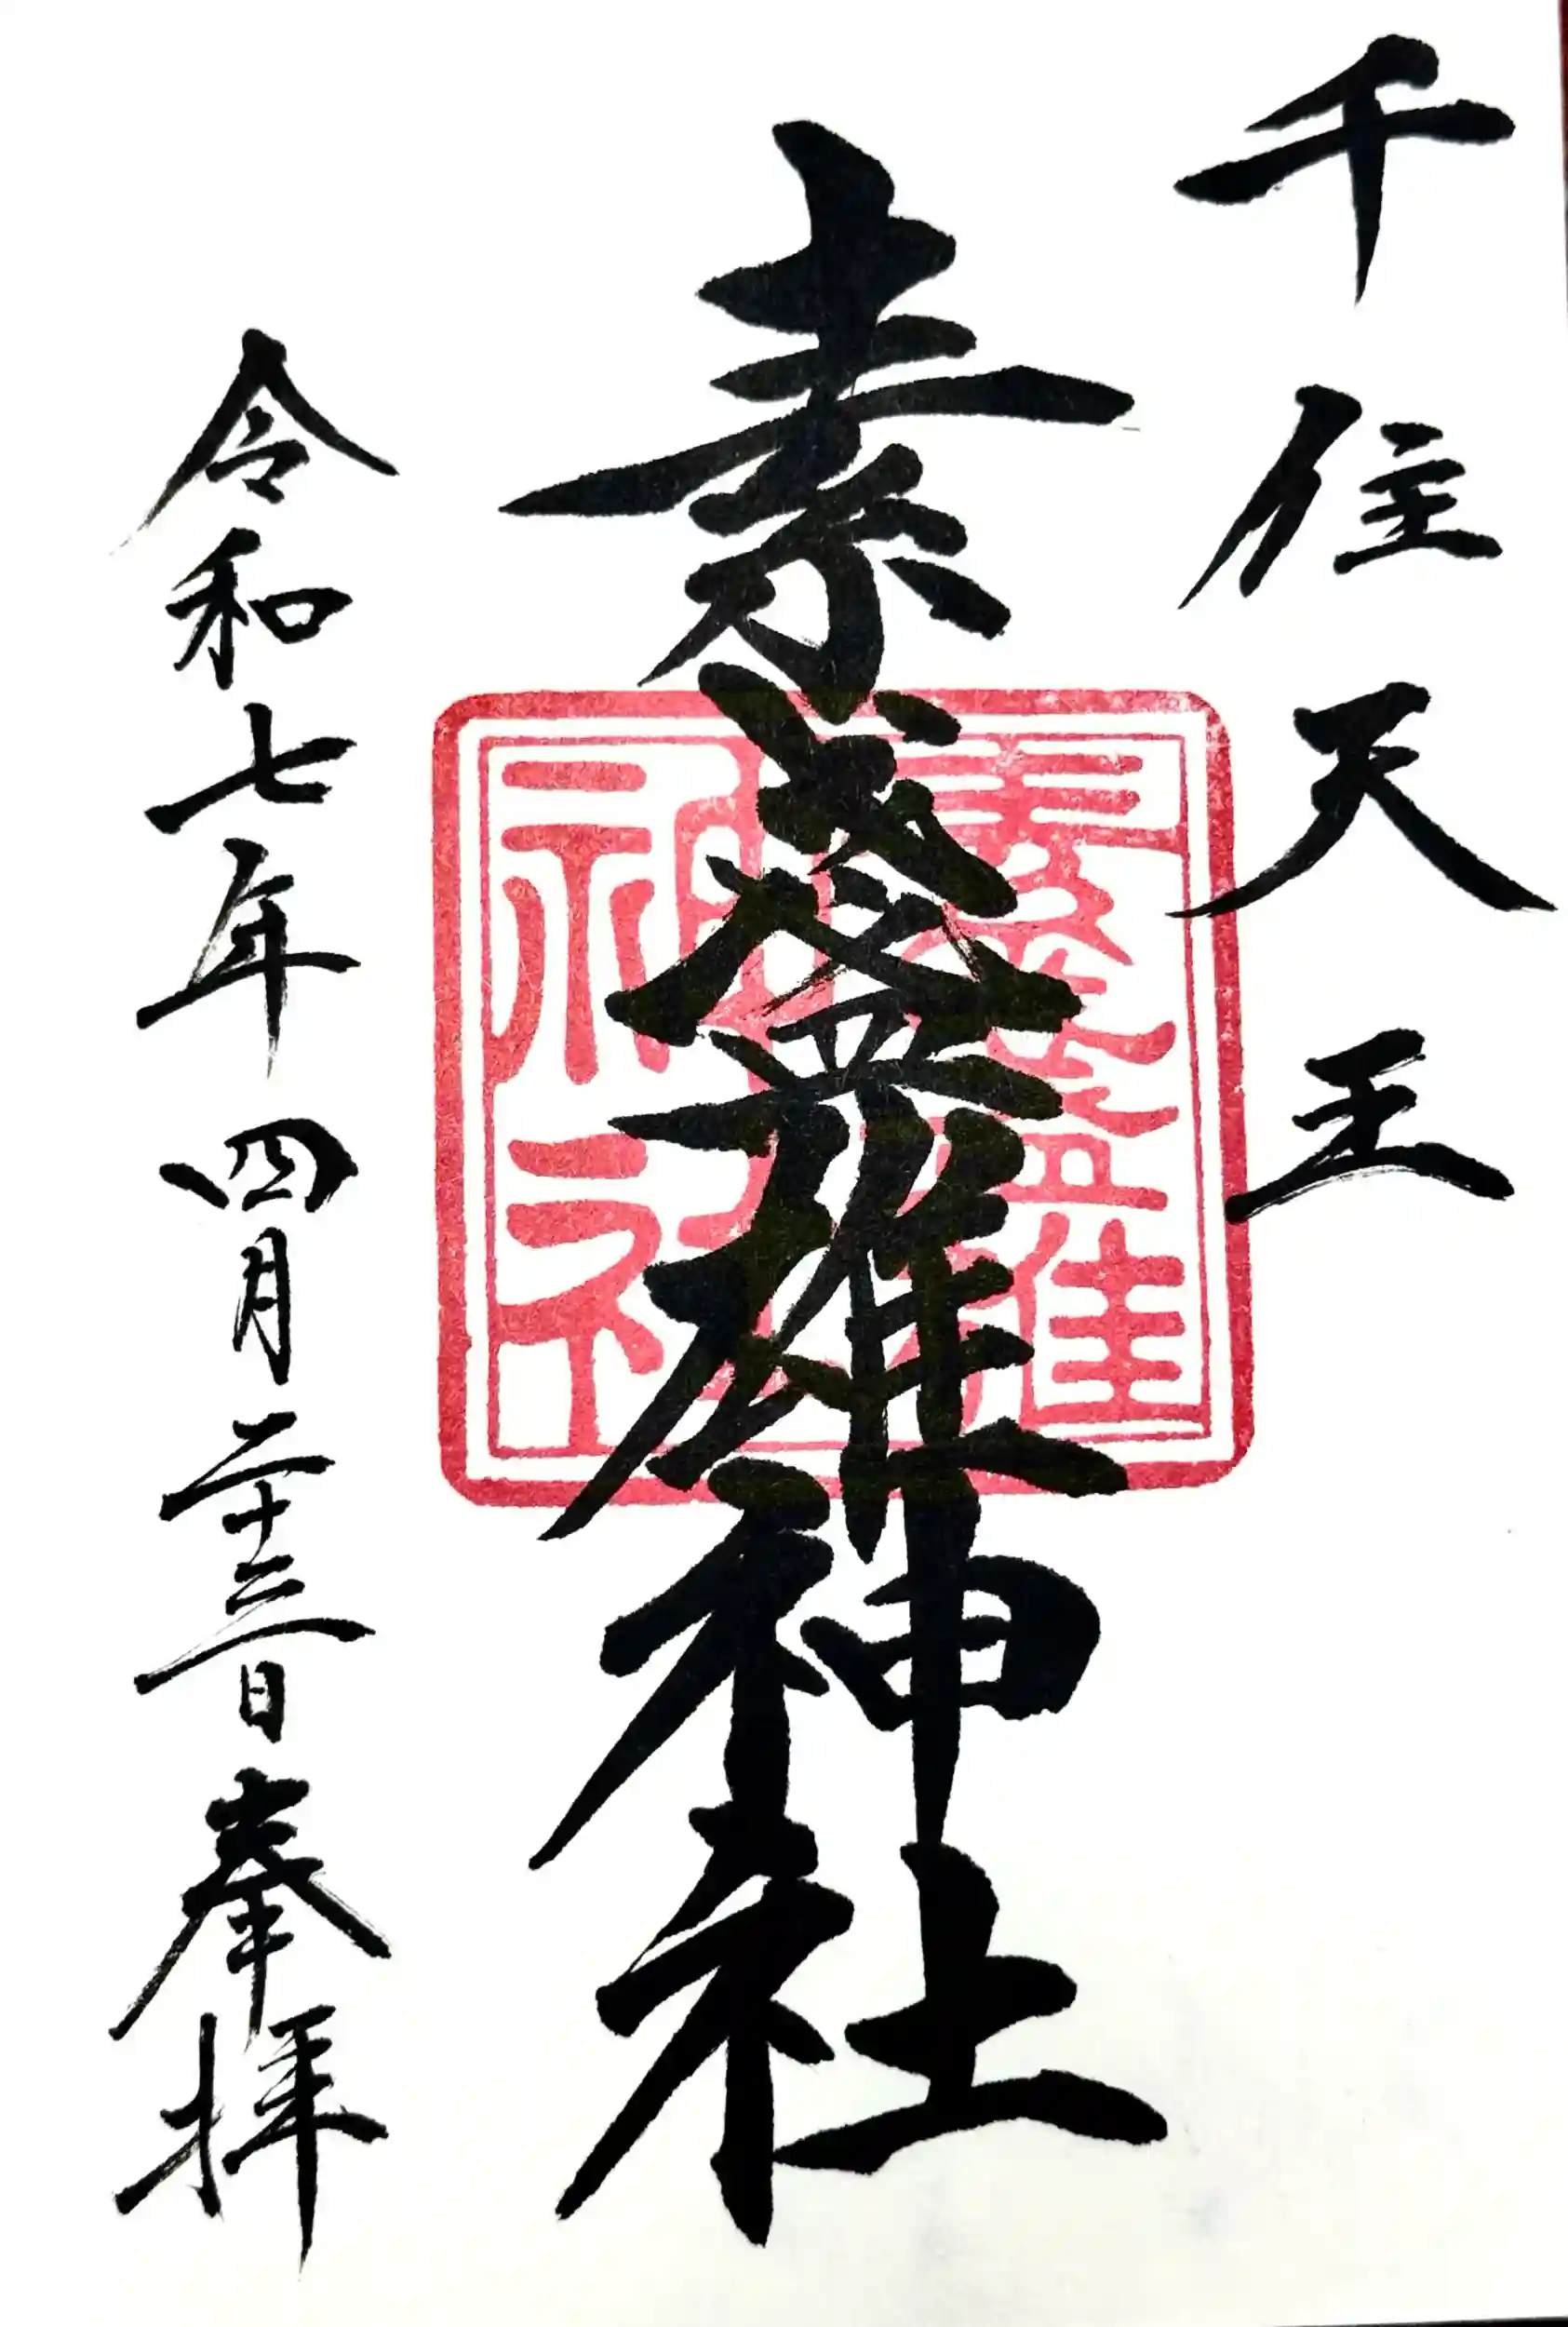 千住天王
素盞雄神社
令和七年四月二十三日奉拝
素盞雄
神社